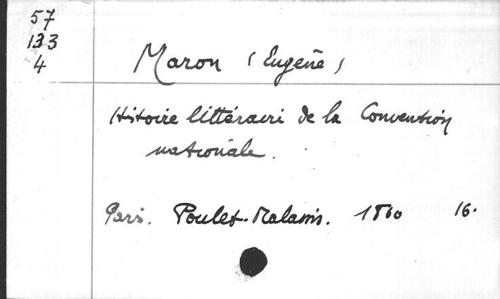 57
133
4
Maron (Eugène)
Histoire littéraire de la Convention
nationale.
Paris. Poulet-Malassis. 1860 16.